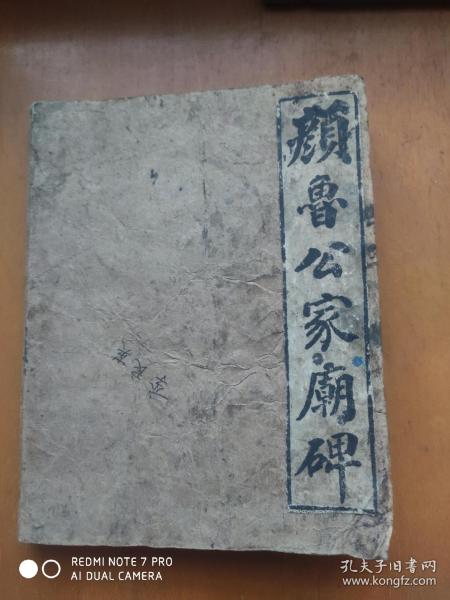 顏魯公家廟碑
REDMI NOTE 7 PRO
AI DUAL CAMERA
孔夫子旧书网
www.kongfz.com